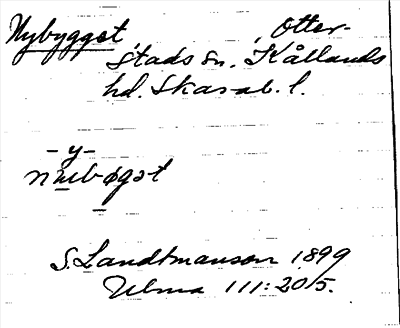 Nybygget Otter-
stads sn. Kållands
hd. Skarab. l.
-y-
nubøgət
S. Landtmanson 1899
Ulma 111:205.